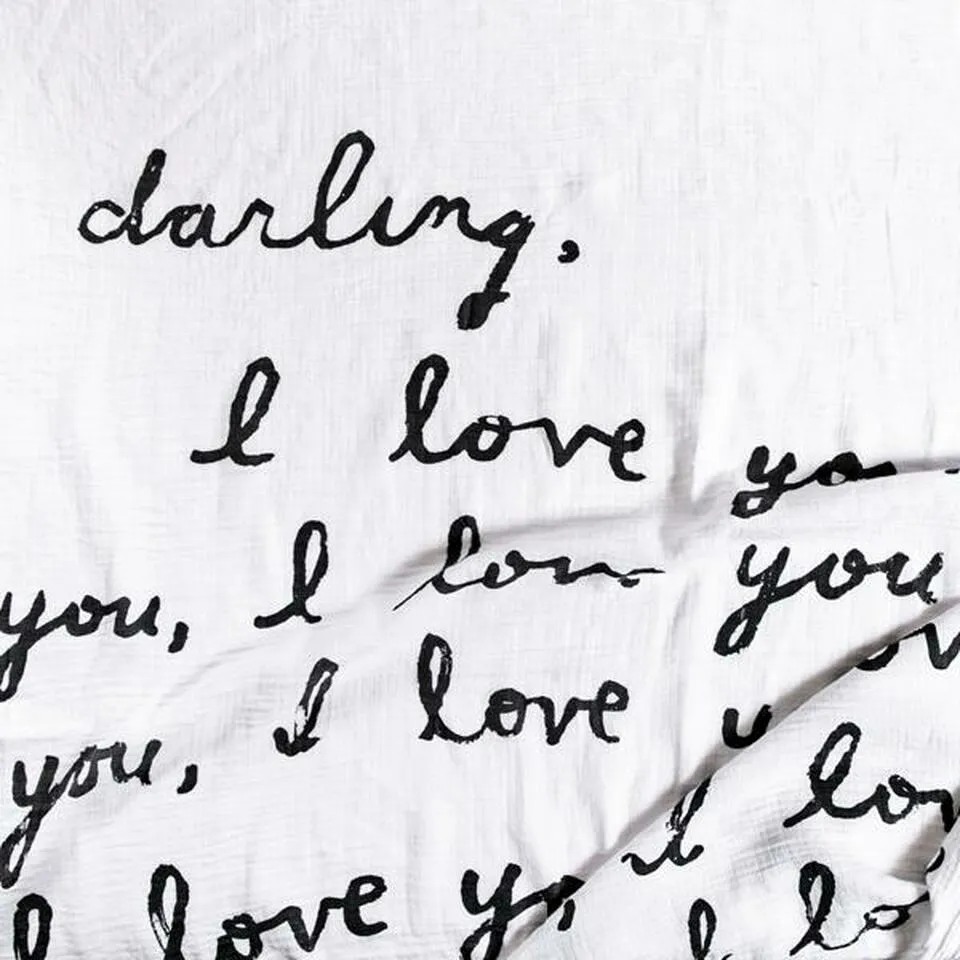 darling,
I love yo
you, I lov you
you, I love
I love yo
I lov
I lo